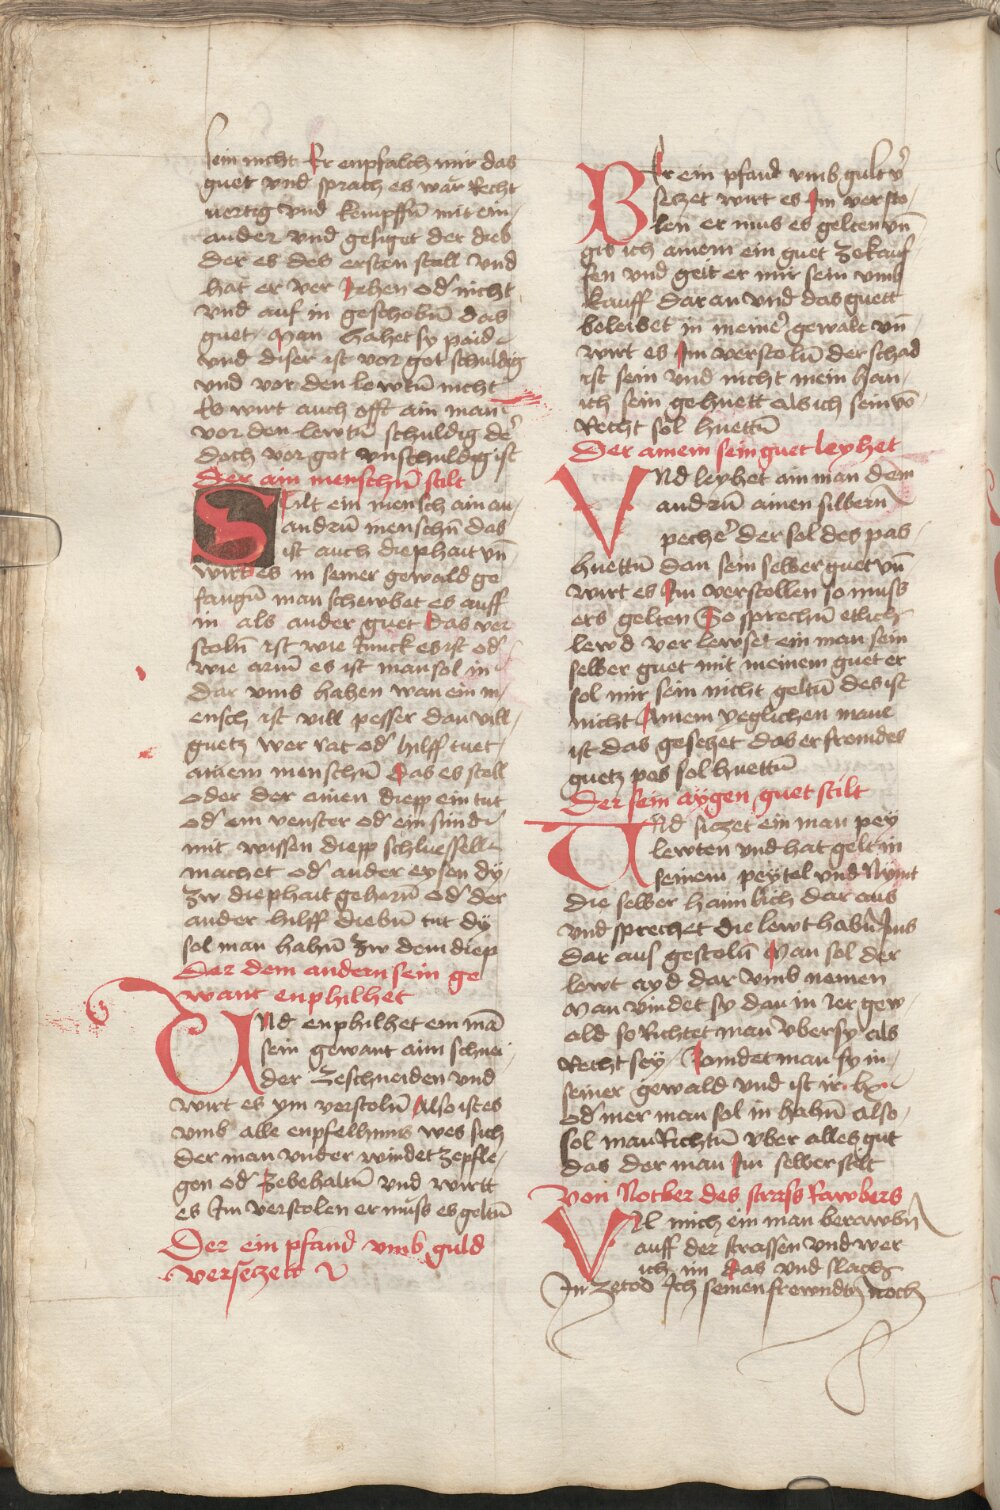 sein nicht Er enpfalch mir das
guet vnd sprach es wär Recht
uertig vnd kempffn̄ mit ein
ander vnd gesiget der dieb
der es des ersten stall vnd
hat er ver Jehen od' nicht
vnd auf in geschobn̄ das
guet Man hahet sy paid
vnd diser ist vor got schuldig
vnd vor den lewtn̄ nicht
Es wirt auch offt ain man
vor den lewtn̄ schuldig der
doch vor got vnschuldig ist
Der ain menschn̄ stilt
Stilt ein mensch ain an
andrn̄ menschn̄ das
ist auch diephait vn̄
wirt es in seiner gewald ge
fangn̄ man schewbet es auff
in als ander guet das ver
stoln̄ ist wie Junck es ist od'
wie arm es ist man sol in
dar vmb hahen wan ein m
ensch ist vill pesser dan vill
guetz wer rat od' hilff tuet
ainem menschn̄ das es stell
oder der einen diepp ein tut
od' ein venster od' ein
mit wissen diepp schluessell
machet od' ander eysen dy
zw diephait gehorn̄ od' der
ander hilff diebn̄ tut dy
sol man hahn̄ zw dem diep
Der dem andern sein ge
want enphilhet
Vnd enphilhet ein mā
sein gewant aim schnei
der zeschneiden vnd
wirt es ym verstoln̄ Also ist es
vmb alle enpfelhnus wes sich
der man vnder windet zepfle
gen od' zebehaltn̄ vnd wirtt
es Im verstolen er muss es geltn̄
Der ein pfand vmb guld
versetzett
Wer ein pfand vmb gult v'
setzet wirt es Im versto
len er mus es gelten vn̄
gib ich ainem ein guet zekauf
fen vnd geit er mir sein vmb
kauff dar an vnd das guett
beleibet in meiner gewalt vn̄
wirt es Im verstoln̄ der schad
ist sein vnd nicht mein han
ich sein gehuett als ich sein vō
Recht sol huettn̄
Der ainem sein guet leyhet
Vnd leyhet ain man dem
andrn̄ ainen silbern̄
pecher der sol des pas
huettn̄ dan sein selber guet vn̄
wirt es Im verstollen so muss
ers gelten So sprechn̄ etlich
lewd verlewset ein man sein
selber guet mit meinem guet er
sol mir sein nicht geltn̄ des ist
nicht Ainem yeglichen mane
ist das gesetzet das er fromdes
guetz pas sol huettn̄
Der sein aygen guet stilt
Vnd sitzet ein man pey
lewten vnd hat gelt in
seinem peytel vnd Nymt
die selber haimlich dar aus
vnd sprechet die lewt habn̄ Ims
dar aus gestoln̄ Man sol der
lewt ayd dar vmb nemen
Man vindet sy dan in Irer gew
ald so Richtet man vber sy als
Recht sey vindet man sy in
seiner gewald vnd ist ir
od' mer man sol in hahn̄ also
sol man Richtn̄ vber alles gut
das der man Im selber stilt
Von Notber des strass Rawbers
Wil mich ein man berawbn̄
auff der strassen vnd wer
ich im das vnd slach
In zetod Ich seinen frewndtn̄ noch